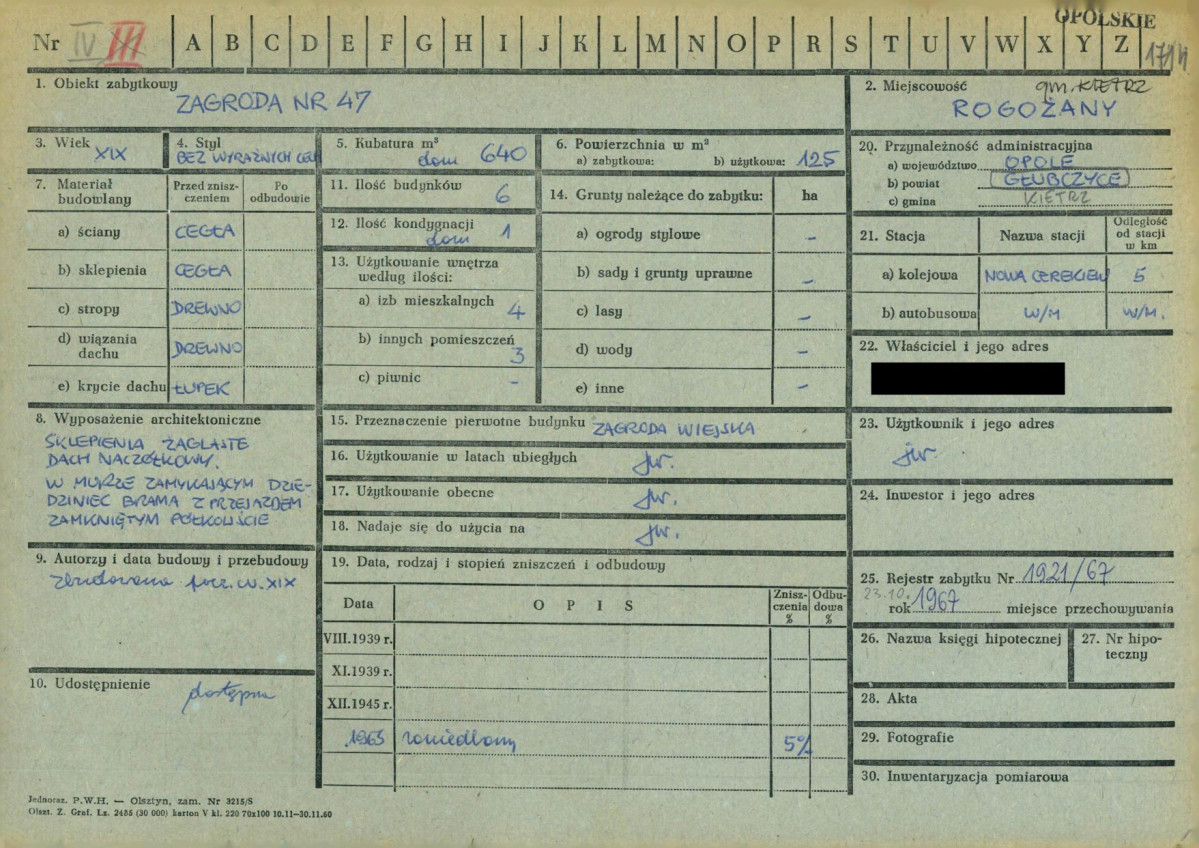 OPOLSKIE
Nr IV III A B C D E F G H I J K L M N O P R S T U V W X Y Z
1. Obiekt zabytkowy
ZAGRODA NR 47
2. Miejscowość gm. KIETRZ
ROGOŻANY
3. Wiek
XIX
4. Styl
BEZ WYRAŹNYCH CECH
5. Kubatura m³
dom 640
6. Powierzchnia w m²
a) zabytkowa: b) użytkowa: 125
20. Przynależność administracyjna
a) województwo OPOLE
b) powiat GŁUBCZYCE
c) gmina KIETRZ
7. Materiał budowlany
Przed zniszczeniem
Po odbudowie
a) ściany CEGŁA
b) sklepienia CEGŁA
c) stropy DREWNO
d) wiązania dachu DREWNO
e) krycie dachu ŁUPEK
11. Ilość budynków 6
12. Ilość kondygnacji
dom 1
13. Użytkowanie wnętrza według ilości:
a) izb mieszkalnych 4
b) innych pomieszczeń 3
c) piwnic -
14. Grunty należące do zabytku: ha
a) ogrody stylowe -
b) sady i grunty uprawne -
c) lasy -
d) wody -
e) inne -
21. Stacja Nazwa stacji Odległość od stacji w km
a) kolejowa NOWA CEREKIEW 5
b) autobusowa W/M W/M.
22. Właściciel i jego adres
8. Wyposażenie architektoniczne
SKLEPIENIA ŻAGLASTE
DACH NACZÓŁKOWY.
W MURZE ZAMYKAJĄCYM DZIE-
DZINIEC BRAMA Z PRZEJAZDEM
ZAMKNIĘTYM PÓŁKOLIŚCIE
15. Przeznaczenie pierwotne budynku ZAGRODA WIEJSKA
16. Użytkowanie w latach ubiegłych jw.
17. Użytkowanie obecne jw.
18. Nadaje się do użycia na jw.
23. Użytkownik i jego adres
jw.
24. Inwestor i jego adres
9. Autorzy i data budowy i przebudowy
Zbudowana pocz. w. XIX
19. Data, rodzaj i stopień zniszczeń i odbudowy
Data OPIS Zniszczenia % Odbudowa %
VIII.1939 r.
XI.1939 r.
XII.1945 r.
1965 zaniedbany 5%
25. Rejestr zabytku Nr 1921/67
23.10.
rok 1967 miejsce przechowywania
26. Nazwa księgi hipotecznej
27. Nr hipoteczny
10. Udostępnienie
dostępna
28. Akta
29. Fotografie
30. Inwentaryzacja pomiarowa
Jednoraz. P.W.H. — Olsztyn, zam. Nr 3215/S
Olszt. Z. Graf. Lz. 2485 (30 000) karton V kl. 220 70x100 10.11—30.11.60